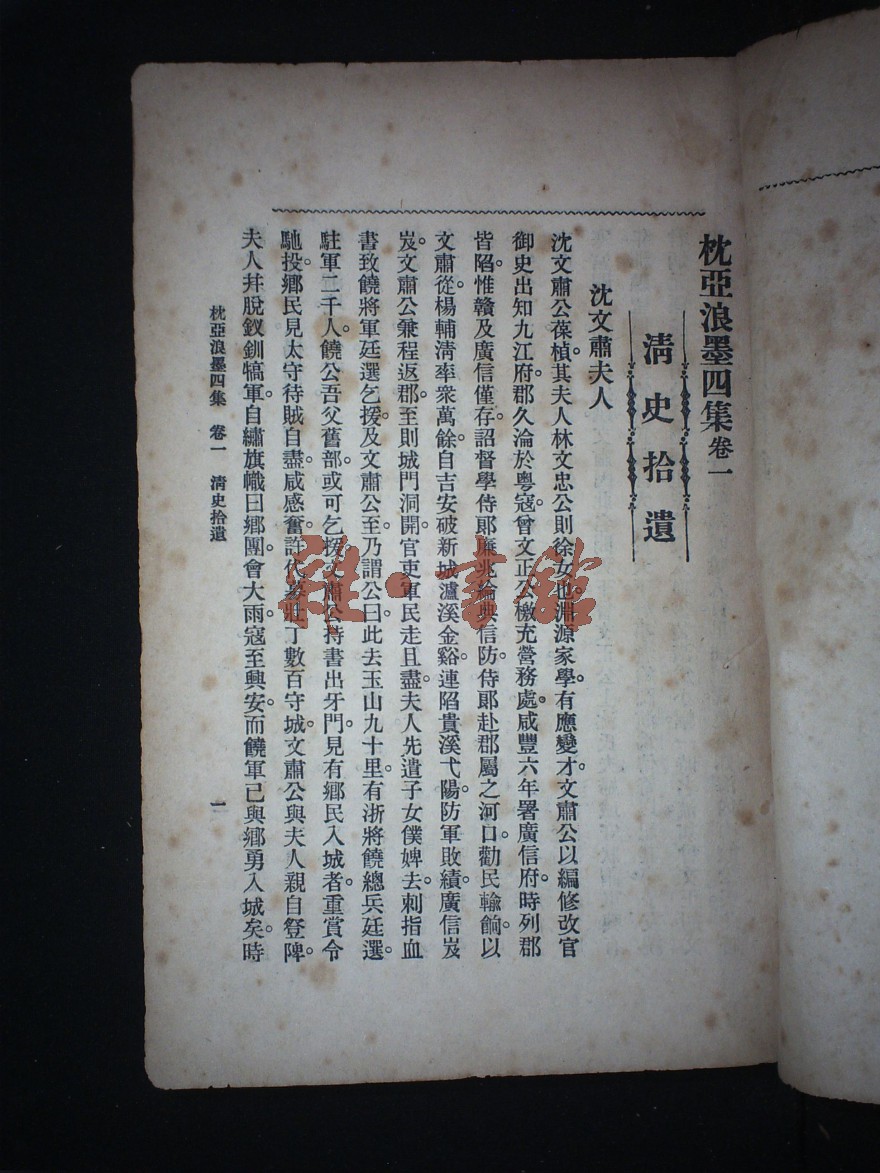 枕亞浪墨四集卷一
清史拾遺
沈文肅夫人
沈文肅公葆楨。其夫人林文忠公則徐女也。淵源家學。有應變才。文肅公以編修改官
御史出知九江府。郡久淪於粵寇。曾文正公檄充營務處。咸豐六年署廣信府。時列郡
皆陷。惟贛及廣信僅存。詔督學侍郞廉兆綸典信防。侍郞赴郡屬之河口。勸民輸餉。以
文肅從。楊輔淸率衆萬餘。自吉安破新城瀘溪金谿。連陷貴溪弋陽。防軍敗績。廣信岌
岌。文肅公兼程返郡。至則城門洞開。官吏軍民走且盡。夫人先遣子女僕婢去。刺指血
書致饒將軍廷選乞援。及文肅公至。乃謂公曰。此去玉山九十里。有浙將饒總兵廷選。
駐軍二千人。饒公吾父舊部。或可乞援。文肅公持書出牙門。見有鄉民入城者。重賞令
馳投。鄉民見太守待賊自盡。咸感奮。許代募壯丁數百守城。文肅公與夫人親自登陴。
夫人幷脫釵釧犒軍。自繡旗幟曰鄉團。會大雨。寇至興安。而饒軍已與鄉勇入城矣。時
枕亞浪墨四集 卷一 淸史拾遺
一
雜·書館